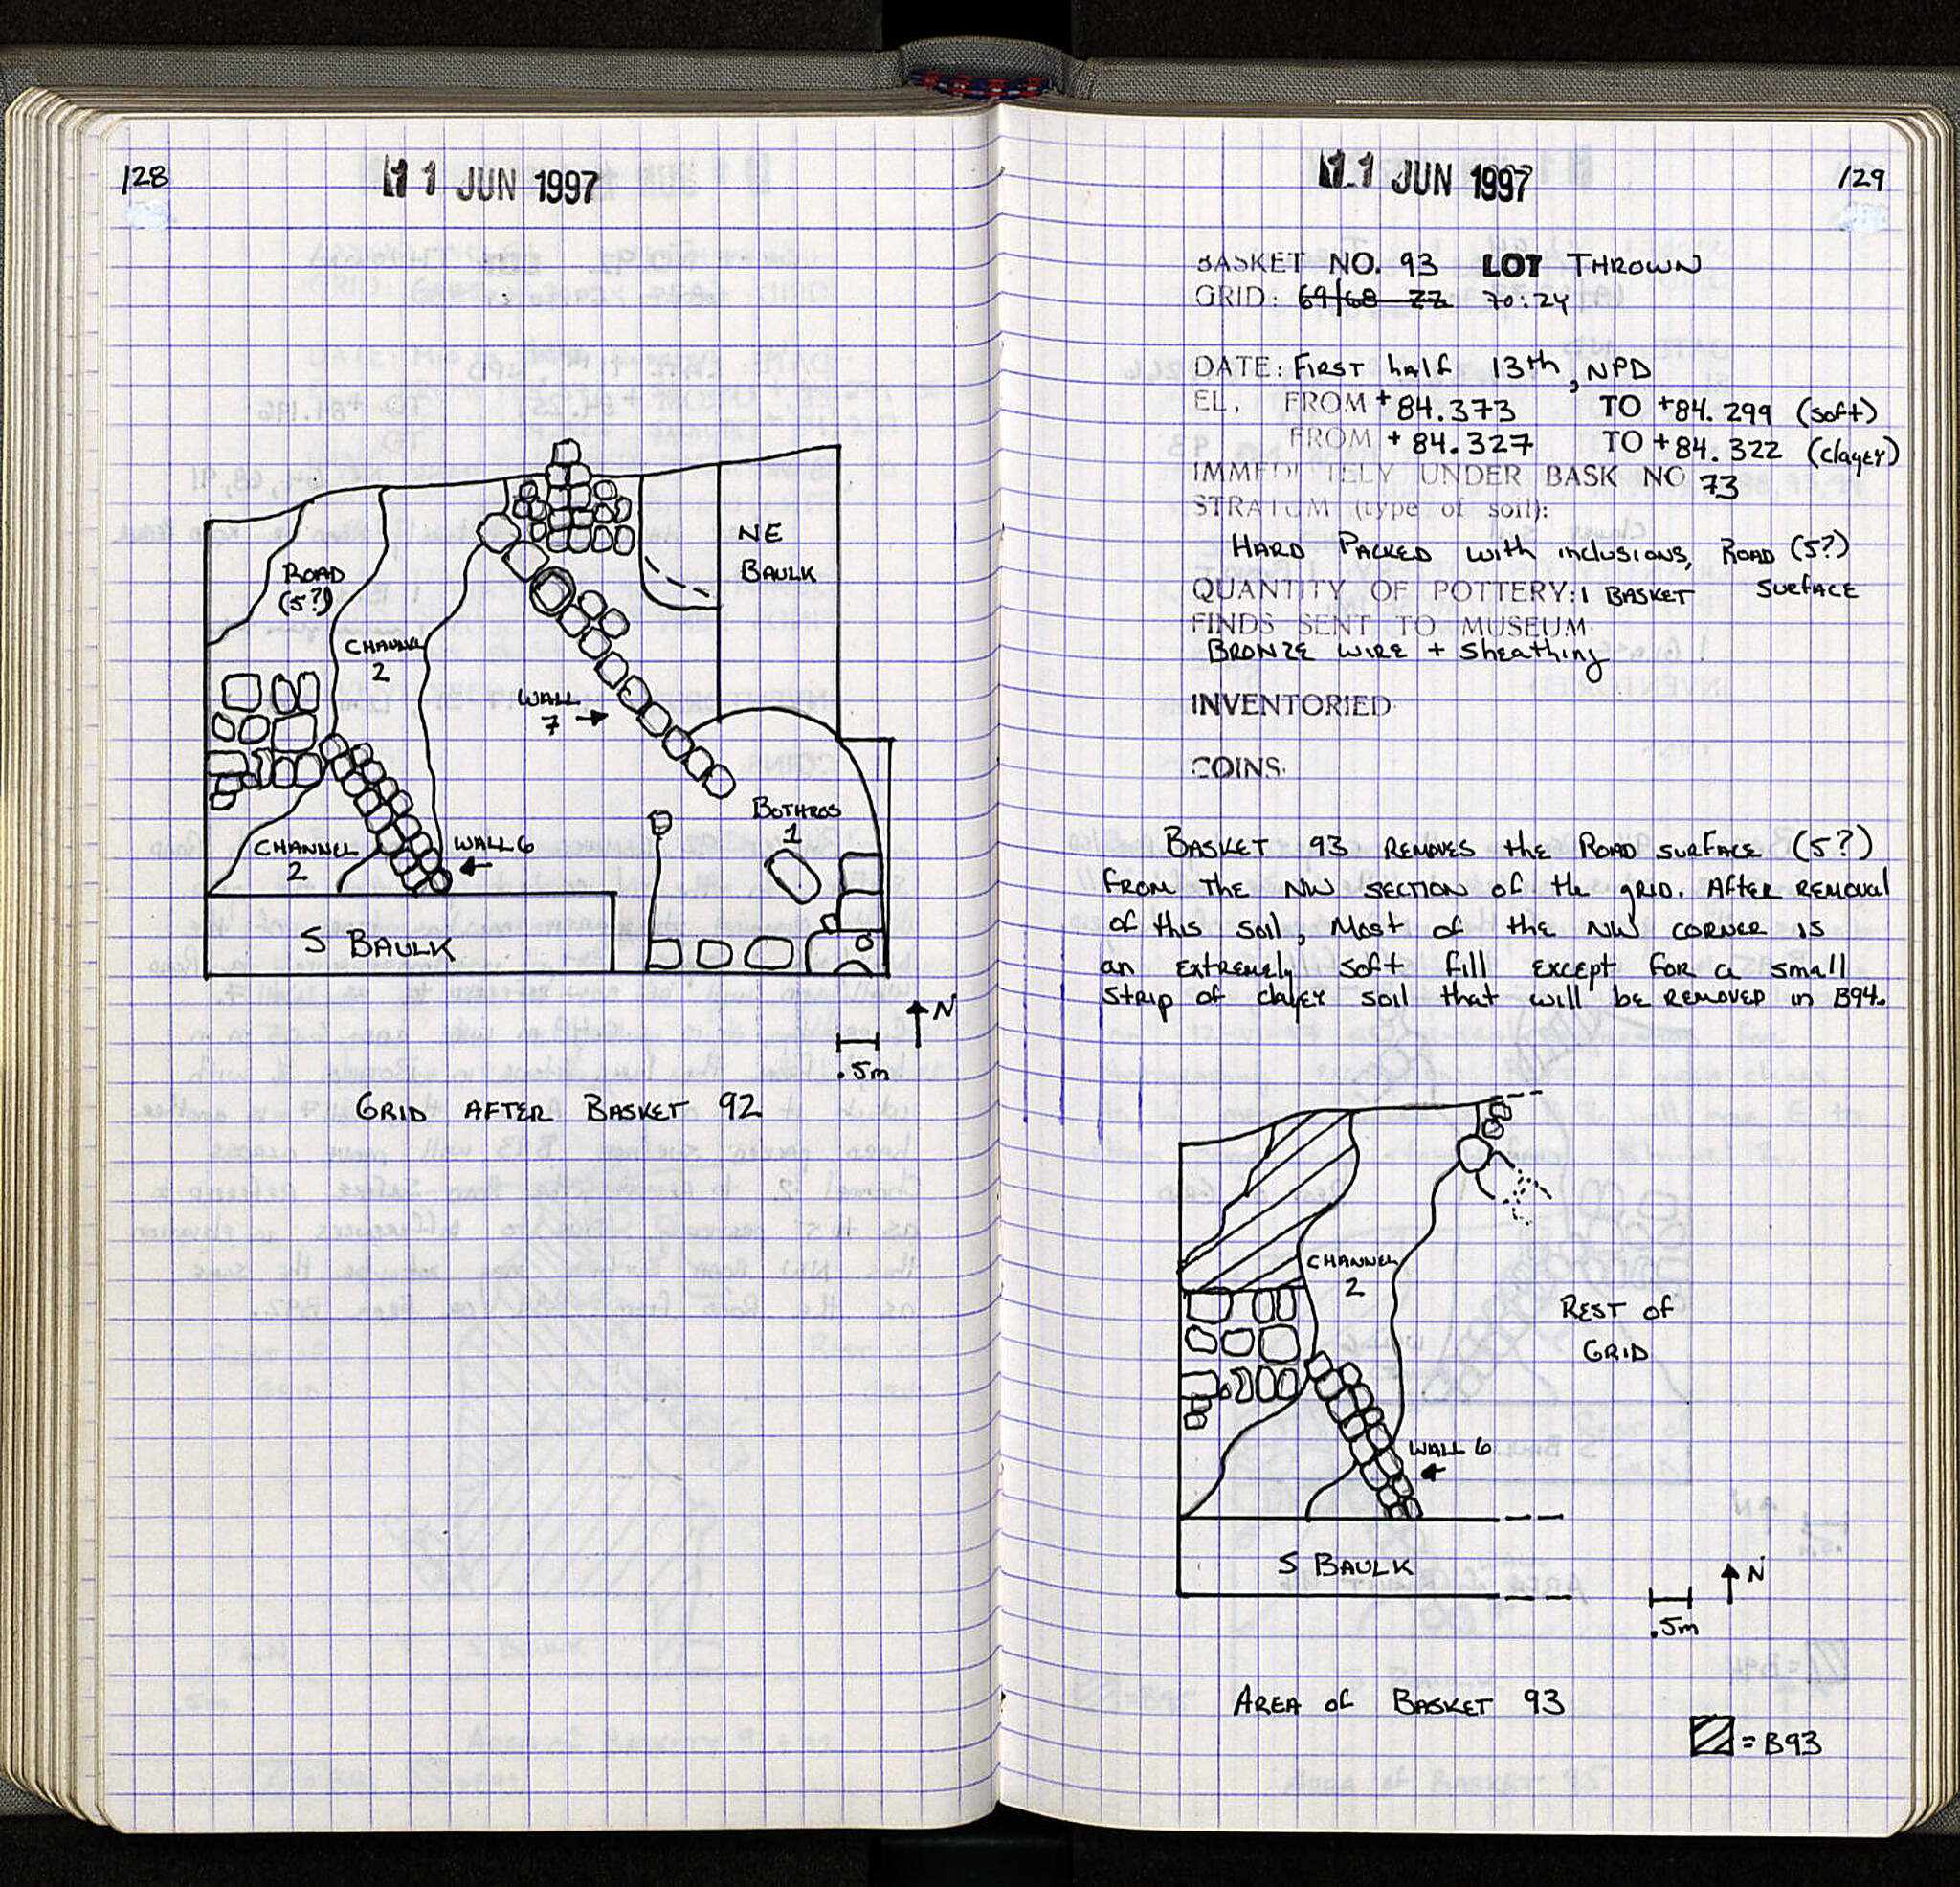 128
11 JUN 1997
ROAD
(5?)
CHANNEL
2
NE
BAULK
WALL
7
BOTHROS
1
CHANNEL
2
WALL 6
S BAULK
N
.5m
GRID AFTER BASKET 92
11 JUN 1997
129
BASKET NO. 93 LOT THROWN
GRID: 69/68 ZZ 70:24
DATE: FIRST half 13th, NPD
EL, FROM +84.373 TO +84.299 (soft)
FROM +84.327 TO +84.322 (clayey)
IMMEDI TELY UNDER BASK NO 73
STRATUM (type of soil):
HARD PACKED with inclusions, ROAD (5?)
SURFACE
QUANTITY OF POTTERY: 1 BASKET
FINDS SENT TO MUSEUM
BRONZE WIRE + Sheathing
INVENTORIED
COINS.
BASKET 93 REMOVES the ROAD SURFACE (5?)
FROM THE NW SECTION of the grid. After REMOVAL
of this soil, Most of the NW CORNER is
an extremely soft fill except for a small
strip of clayey soil that will be REMOVED in B94.
CHANNEL
2
REST of
GRID
WALL 6
S BAULK
N
.5m
AREA of BASKET 93
= B93